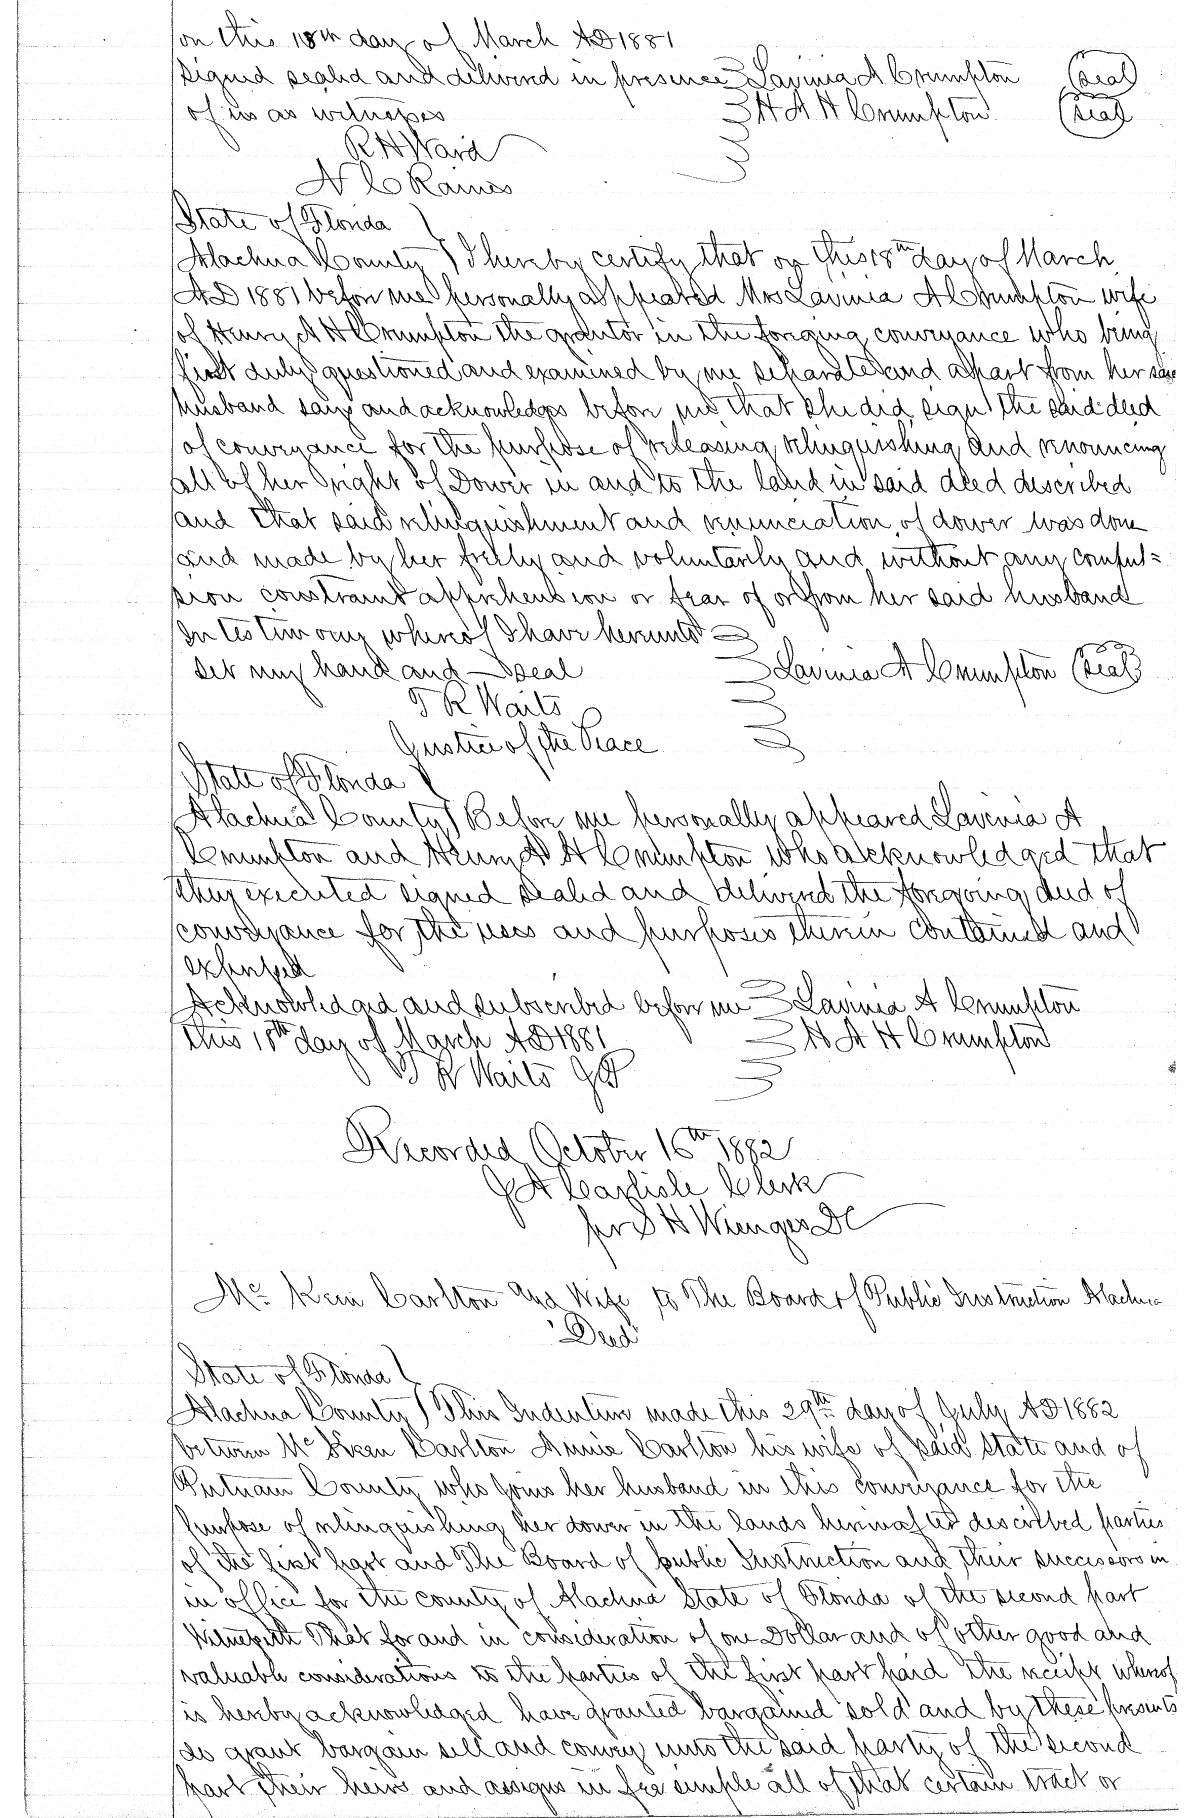 on this 18th day of March AD 1881
signed sealed and delivered in presence Lavinia A Crumpton (seal)
of us as witnesses H A H Crumpton (seal)
R H Ward
N C Raines
State of Florida
Alachua County I hereby certify that on this 18th day of March
AD 1881 before me personally appeared Mrs Lavinia A Crumpton wife
of Henry A H Crumpton the grantor in the foregoing conveyance who being
first duly questioned and examined by me separate and apart from her said
husband says and acknowledges before me that she did sign the said deed
of conveyance for the purpose of releasing relinquishing and renouncing
all of her right of Dower in and to the land in said deed described
and that said relinquishment and renunciation of dower was done
and made by her freely and voluntarily and without any compul=
sion constraint apprehension or fear of or from her said husband
In testimony whereof I have hereunto
set my hand and seal Lavinia A Crumpton (seal)
T R Waits
Justice of the Peace
State of Florida
Alachua County Before me personally appeared Lavinia A
Crumpton and Henry A H Crumpton who acknowledged that
they executed signed sealed and delivered the foregoing deed of
conveyance for the uses and purposes therein contained and
expressed
Acknowledged and subscribed before me Lavinia A Crumpton
this 18th day of March AD 1881 H A H Crumpton
T R Waits JP
Recorded October 16th 1882
J A Carlisle Clerk
pr S H Wienges DC
Mc Kein Carlton and Wife to The Board of Public Instruction Alachua
"Deed"
State of Florida
Alachua County This Indenture made this 29th day of July AD 1882
between Mc Keen Carlton Annie Carlton his wife of said State and of
Putnam County who joins her husband in this conveyance for the
purpose of relinquishing her dower in the lands hereinafter described parties
of the first part and The Board of public Instruction and their successors in
in office for the county of Alachua State of Florida of the second part
Witnesseth That for and in consideration of one Dollar and of other good and
valuable considerations to the parties of the first part paid the receipt whereof
is hereby acknowledged have granted bargained sold and by these presents
do grant bargain sell and convey unto the said party of the second
part their heirs and assigns in fee simple all of that certain tract or